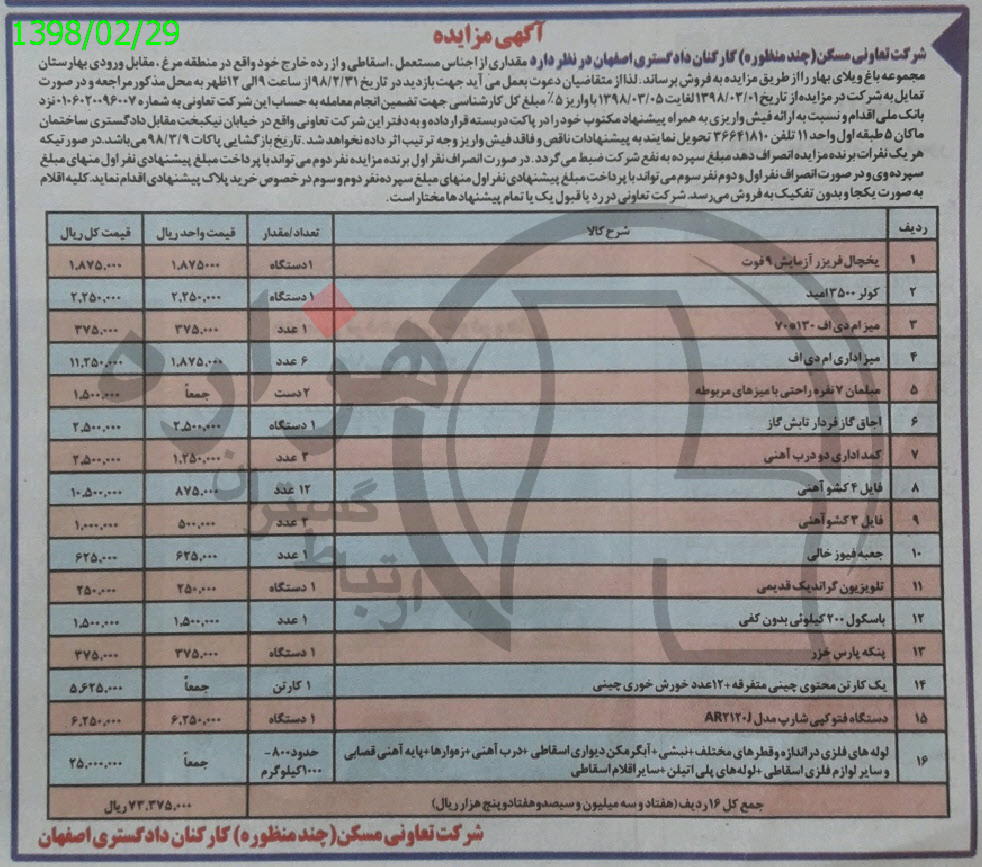 1398/02/29
آگهی مزایده
شرکت تعاونی مسکن (چند منظوره) کارکنان دادگستری اصفهان در نظر دارد مقداری از اجناس مستعمل، اسقاطی و از رده خارج خود واقع در منطقه مرغ، مقابل ورودی بهارستان
مجموعه باغ ویلای بهار را از طریق مزایده به فروش برساند. لذا از متقاضیان دعوت بعمل می آید جهت بازدید در تاریخ ۹۸/۲/۳۱ از ساعت ۹ الی ۱۲ ظهر به محل مذکور مراجعه و در صورت
تمایل به شرکت در مزایده از تاریخ ۱۳۹۸/۰۳/۰۱ لغایت ۱۳۹۸/۰۳/۰۵ با واریز ۵٪ مبلغ کل کارشناسی جهت تضمین انجام معامله به حساب این شرکت تعاونی به شماره ۰۱۰۶۰۲۰۰۹۶۰۰۷ نزد
بانک ملی اقدام و نسبت به ارائه فیش واریزی به همراه پیشنهاد مکتوب خود را در پاکت دربسته قرار داده و به دفتر این شرکت تعاونی واقع در خیابان نیکبخت مقابل دادگستری ساختمان
ماکان ۵ طبقه اول واحد ۱۱ تلفن ۳۶۶۴۱۸۱۰ تحویل نمایند به پیشنهادات ناقص و فاقد فیش واریز وجه ترتیب اثر داده نخواهد شد. تاریخ بازگشایی پاکات ۹۸/۳/۹ می‌باشد. در صورتیکه
هر یک نفرات برنده مزایده انصراف دهد مبلغ سپرده به نفع شرکت ضبط می گردد. در صورت انصراف نفر اول برنده مزایده نفر دوم می تواند با پرداخت مبلغ پیشنهادی نفر اول منهای مبلغ
سپرده وی و در صورت انصراف نفر اول و دوم نفر سوم می تواند با پرداخت مبلغ پیشنهادی نفر اول منهای مبلغ سپرده نفر دوم و سوم در خصوص خرید پلاک پیشنهادی اقدام نماید. کلیه اقلام
به صورت یکجا و بدون تفکیک به فروش می رسد. شرکت تعاونی در رد یا قبول یک یا تمام پیشنهادها مختار است.
ردیف شرح کالا تعداد/مقدار قیمت واحد ریال قیمت کل ریال
۱ یخچال فریزر آزمایش ۹ فوت ۱ دستگاه ۱,۸۷۵۰۰۰ ۱,۸۷۵,۰۰۰
۲ کولر ۳۵۰۰ امید ۱ دستگاه ۲,۲۵۰,۰۰۰ ۲,۲۵۰,۰۰۰
۳ میز ام دی اف ۱۳۰*۷۰ ۱ عدد ۳۷۵,۰۰۰ ۳۷۵,۰۰۰
۴ میز اداری ام دی اف ۶ عدد ۱,۸۷۵,۰۰۰ ۱۱,۲۵۰,۰۰۰
۵ مبلمان ۷ نفره راحتی با میزهای مربوطه ۲ دست جمعاً ۱,۵۰۰,۰۰۰
۶ اجاق گاز فردار تابش گاز ۱ دستگاه ۲,۵۰۰,۰۰۰ ۲,۵۰۰,۰۰۰
۷ کمد اداری دو درب آهنی ۲ عدد ۱,۲۵۰,۰۰۰ ۲,۵۰۰,۰۰۰
۸ فایل ۴ کشو آهنی ۱۲ عدد ۸۷۵,۰۰۰ ۱۰,۵۰۰,۰۰۰
۹ فایل ۳ کشو آهنی ۲ عدد ۵۰۰,۰۰۰ ۱,۰۰۰,۰۰۰
۱۰ جعبه فیوز خالی ۱ عدد ۶۲۵,۰۰۰ ۶۲۵,۰۰۰
۱۱ تلویزیون گراندیک قدیمی ۱ دستگاه ۲۵۰,۰۰۰ ۲۵۰,۰۰۰
۱۲ باسکول ۲۰۰ کیلوئی بدون کفی ۱ عدد ۱,۵۰۰,۰۰۰ ۱,۵۰۰,۰۰۰
۱۳ پنکه پارس خزر ۱ دستگاه ۳۷۵,۰۰۰ ۳۷۵,۰۰۰
۱۴ یک کارتن محتوی چینی متفرقه +۱۲ عدد خورش خوری چینی ۱ کارتن جمعاً ۵,۶۲۵,۰۰۰
۱۵ دستگاه فتوکپی شارپ مدل AR۲۱۲۰J ۱ دستگاه ۶,۲۵۰,۰۰۰ ۶,۲۵۰,۰۰۰
۱۶ لوله های فلزی در اندازه و قطرهای مختلف+نبشی+آبگرمکن دیواری اسقاطی +درب آهنی +زهوارها+پایه آهنی قصابی حدود ۸۰۰- جمعاً ۲۵,۰۰۰,۰۰۰
و سایر لوازم فلزی اسقاطی +لوله‌های پلی اتیلن +سایر اقلام اسقاطی ۱۰۰۰کیلوگرم
جمع کل ۱۶ ردیف (هفتاد و سه میلیون و سیصد و هفتاد و پنج هزار ریال) ۷۳,۳۷۵,۰۰۰ ریال
شرکت تعاونی مسکن (چند منظوره) کارکنان دادگستری اصفهان
هزاره
گستران
ارتباط